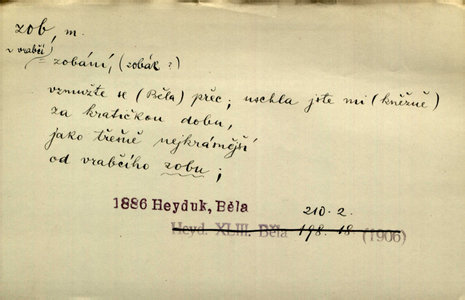 zob, m.
z vrabčí
= zobání, (zobák?)
vzmužte se (Běla) přec; uschla jste mi (kněžně)
za kratičkou dobu,
jako třešně nejkrámější
od vrabčího zobu;
1886 Heyduk, Běla 210. 2.
Heyd. XLIII. Běla 198. 18. (1906)